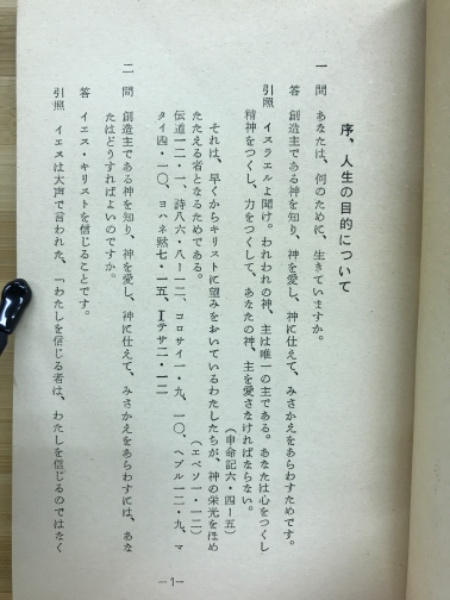 序、人生の目的について
一 問 あなたは、何のために、生きていますか。
答 創造主である神を知り、神を愛し、神に仕えて、みさかえをあらわすためです。
引照 イスラエルよ聞け。われわれの神、主は唯一の主である。あなたは心をつくし
精神をつくし、力をつくして、あなたの神、主を愛さなければならない。
(申命記六・四ー五)
それは、早くからキリストに望みをおいているわたしたちが、神の栄光をほめ
たたえる者となるためである。
(エペソ一・一二)
伝道一二・一、詩八六・八ー一二、コロサイ一・九、一〇、ヘブル一二・九、マ
タイ四・一〇、ヨハネ黙七・一五、Iテサ二・一二
二 問 創造主である神を知り、神を愛し、神に仕えて、みさかえをあらわすには、あな
たはどうすればよいのですか。
答 イエス・キリストを信じることです。
引照 イエスは大声で言われた、「わたしを信じる者は、わたしを信じるのではなく
—1—